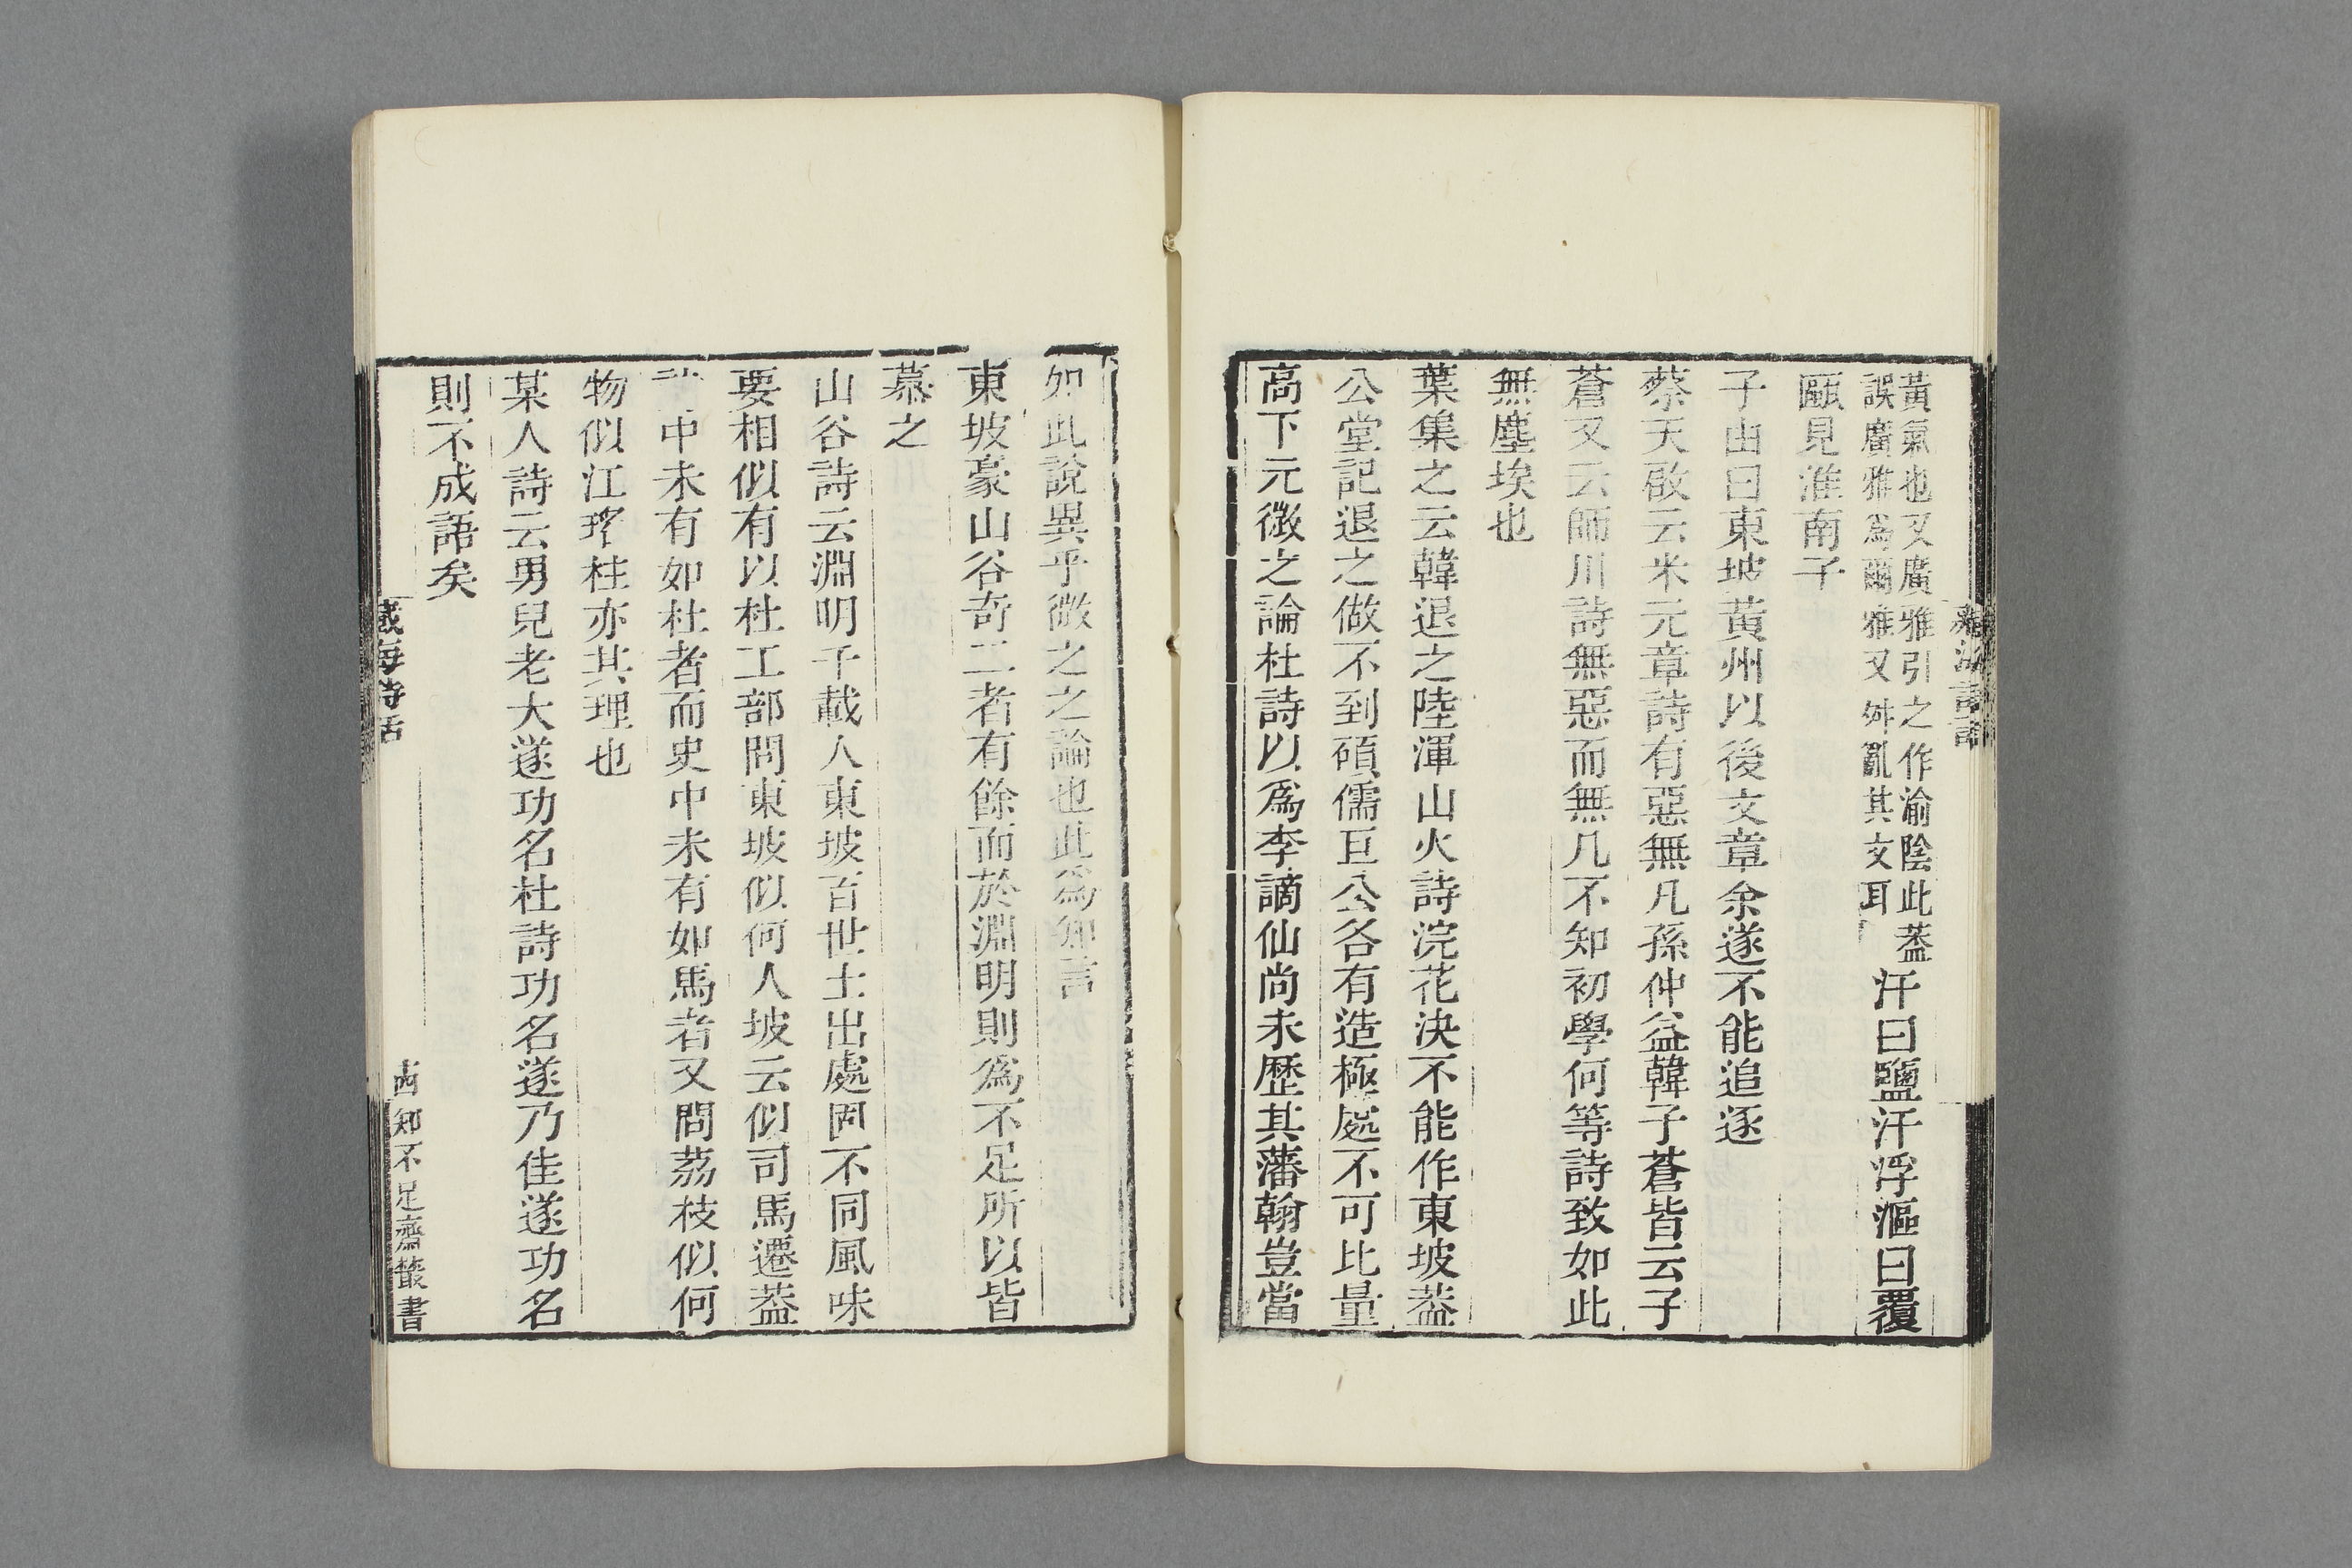 黃氣也又廣雅引之作渝陰此葢
誤廣雅爲爾雅又舛亂其文耳
汗曰鹽汗浮漚曰覆
甌見淮南子
子由曰東坡黃州以後文章余遂不能追逐
蔡天啟云米元章詩有惡無凡孫仲益韓子蒼皆云子
蒼又云師川詩無惡而無凡不知初學何等詩致如此
無塵埃也
葉集之云韓退之陸渾山火詩浣花決不能作東坡葢
公堂記退之做不到碩儒巨公各有造極處不可比量
高下元微之論杜詩以爲李謫仙尚未歷其藩翰豈當
如此說異乎微之之論也此爲知言
東坡豪山谷奇二者有餘而於淵明則爲不足所以皆
慕之
山谷詩云淵明千載人東坡百世士出處固不同風味
要相似有以杜工部問東坡似何人坡云似司馬遷葢
中未有如杜者而史中未有如馬者又問荔枝似何
物似江瑤柱亦其理也
某人詩云男兒老大遂功名杜詩功名遂乃佳遂功名
則不成語矣
誠每詩話
知不足齋叢書